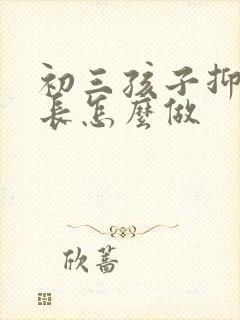 初三孩子抑
長怎麼做
欣蓄